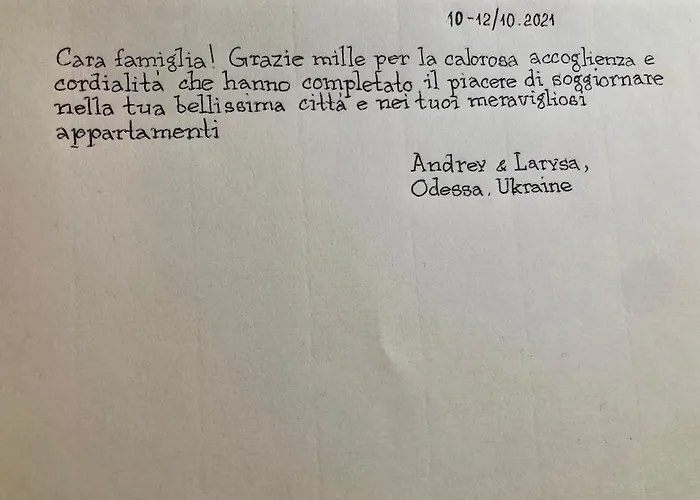 10-12/10.2021
Cara famiglia! Grazie mille per la calorosa accoglienza e
cordialità che hanno completato il piacere di soggiornare
nella tua bellissima città e nei tuoi meravigliosi
appartamenti
Andrey & Larysa,
Odessa, Ukraine